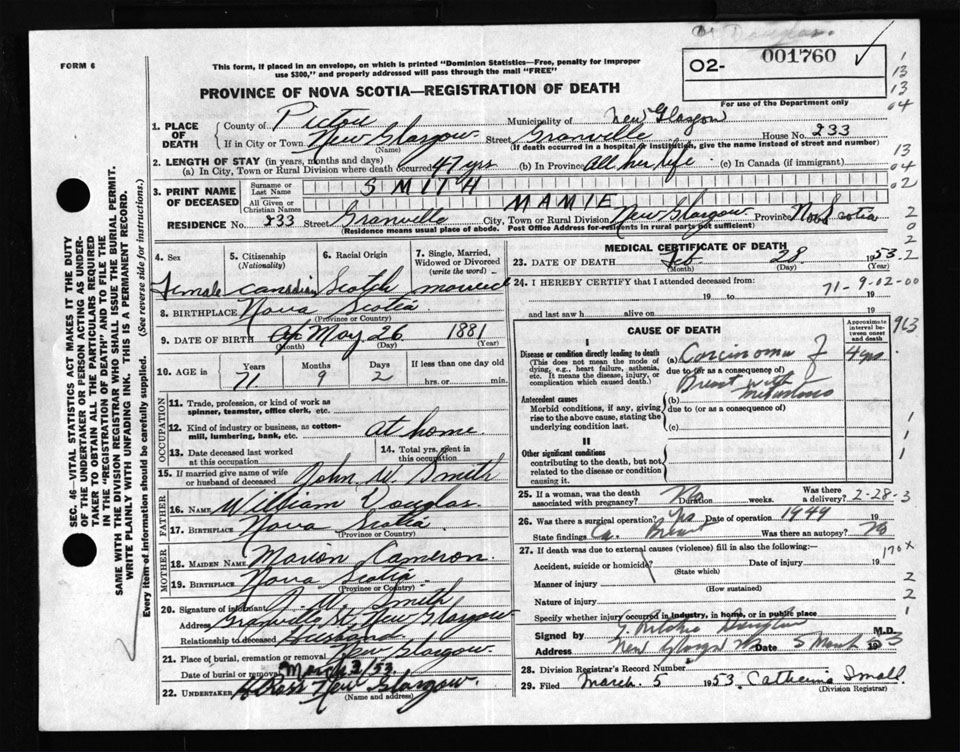 Dr Douglas.
001760
O2-
FORM 6
This form, if placed in an envelope, on which is printed "Dominion Statistics—Free, penalty for improper
use $300," and properly addressed will pass through the mail "FREE"
PROVINCE OF NOVA SCOTIA—REGISTRATION OF DEATH
For use of the Department only
1. PLACE OF DEATH
County of Pictou Municipality of New Glasgow
If in City or Town New Glasgow Street Granville House No. 233
(Name) (If death occurred in a hospital or institution, give the name instead of street and number)
2. LENGTH OF STAY (in years, months and days)
(a) In City, Town or Rural Division where death occurred 47 yrs (b) In Province All her life (c) In Canada (if immigrant)
3. PRINT NAME OF DECEASED
Surname or Last Name SMITH
All Given or Christian Names MAMIE
RESIDENCE No. 233 Street Granville City, Town or Rural Division New Glasgow Province Nova Scotia
(Residence means usual place of abode. Post Office Address for residents in rural parts not sufficient)
4. Sex
Female
5. Citizenship
(Nationality)
Canadian
6. Racial Origin
Scotch
7. Single, Married,
Widowed or Divorced
(write the word)
married
8. BIRTHPLACE Nova Scotia
(Province or Country)
9. DATE OF BIRTH May 26 1881
(Month) (Day)
10. AGE in
Years Months Days If less than one day
71 9 2 hrs. or min.
OCCUPATION
11. Trade, profession, or kind of work as
spinner, teamster, office clerk, etc.
12. Kind of industry or business, as cotton-
mill, lumbering, bank, etc. at home.
13. Date deceased last worked
at this occupation
14. Total yrs. spent in
this occupation
15. If married give name of wife
or husband of deceased John W. Smith
FATHER
16. NAME William Douglas
17. BIRTHPLACE Nova Scotia
(Province or Country)
MOTHER
18. MAIDEN NAME Marion Cameron.
19. BIRTHPLACE Nova Scotia
(Province or Country)
20. Signature of informant J. W. Smith
Address Granville St. New Glasgow
Relationship to deceased Husband
21. Place of burial, cremation or removal New Glasgow.
Date of burial or removal March 3/53.
22. UNDERTAKER New Glasgow.
(Name and address)
SEC. 46 - VITAL STATISTICS ACT MAKES IT THE DUTY
OF THE UNDERTAKER OR PERSON ACTING AS UNDER-
TAKER TO OBTAIN ALL THE PARTICULARS REQUIRED
IN THE "REGISTRATION OF DEATH" AND TO FILE THE
SAME WITH THE DIVISION REGISTRAR WHO SHALL ISSUE THE BURIAL PERMIT.
WRITE PLAINLY WITH UNFADING INK. THIS IS A PERMANENT RECORD.
Every item of information should be carefully supplied. (See reverse side for instructions.)
MEDICAL CERTIFICATE OF DEATH
23. DATE OF DEATH Feb 28 1953
(Month) (Day) (Year)
24. I HEREBY CERTIFY that I attended deceased from:
71-9-02-00
19 to 19
and last saw h alive on 19
CAUSE OF DEATH
Approximate
interval be-
tween onset
and death
I
Disease or condition directly leading to death
(This does not mean the mode of
dying, e.g., heart failure, asthenia,
etc. It means the disease, injury, or
complication which caused death.)
(a) Carcinoma of 4 yrs
due to (or as a consequence of)
Breast with
(b)
Antecedent causes
Morbid conditions, if any, giving
rise to the above cause, stating the
underlying condition last.
due to (or as a consequence of)
(c)
II
Other significant conditions
contributing to the death, but not
related to the disease or condition
causing it.
25. If a woman, was the death
associated with pregnancy? No Duration weeks. Was there
a delivery? 2-28-3
26. Was there a surgical operation? Yes Date of operation 1949
State findings Ca. Breast Was there an autopsy? No
27. If death was due to external causes (violence) fill in also the following:—
Accident, suicide or homicide? Date of injury 19
(State which)
Manner of injury
(How sustained)
Nature of injury
Specify whether injury occurred in industry, in home, or in public place
Signed by G Ritchie Douglas M.D.
Address New Glasgow NS Date 5 March 1953
28. Division Registrar's Record Number
29. Filed March. 5 1953. Catherine Small.
(Division Registrar)
963
170X